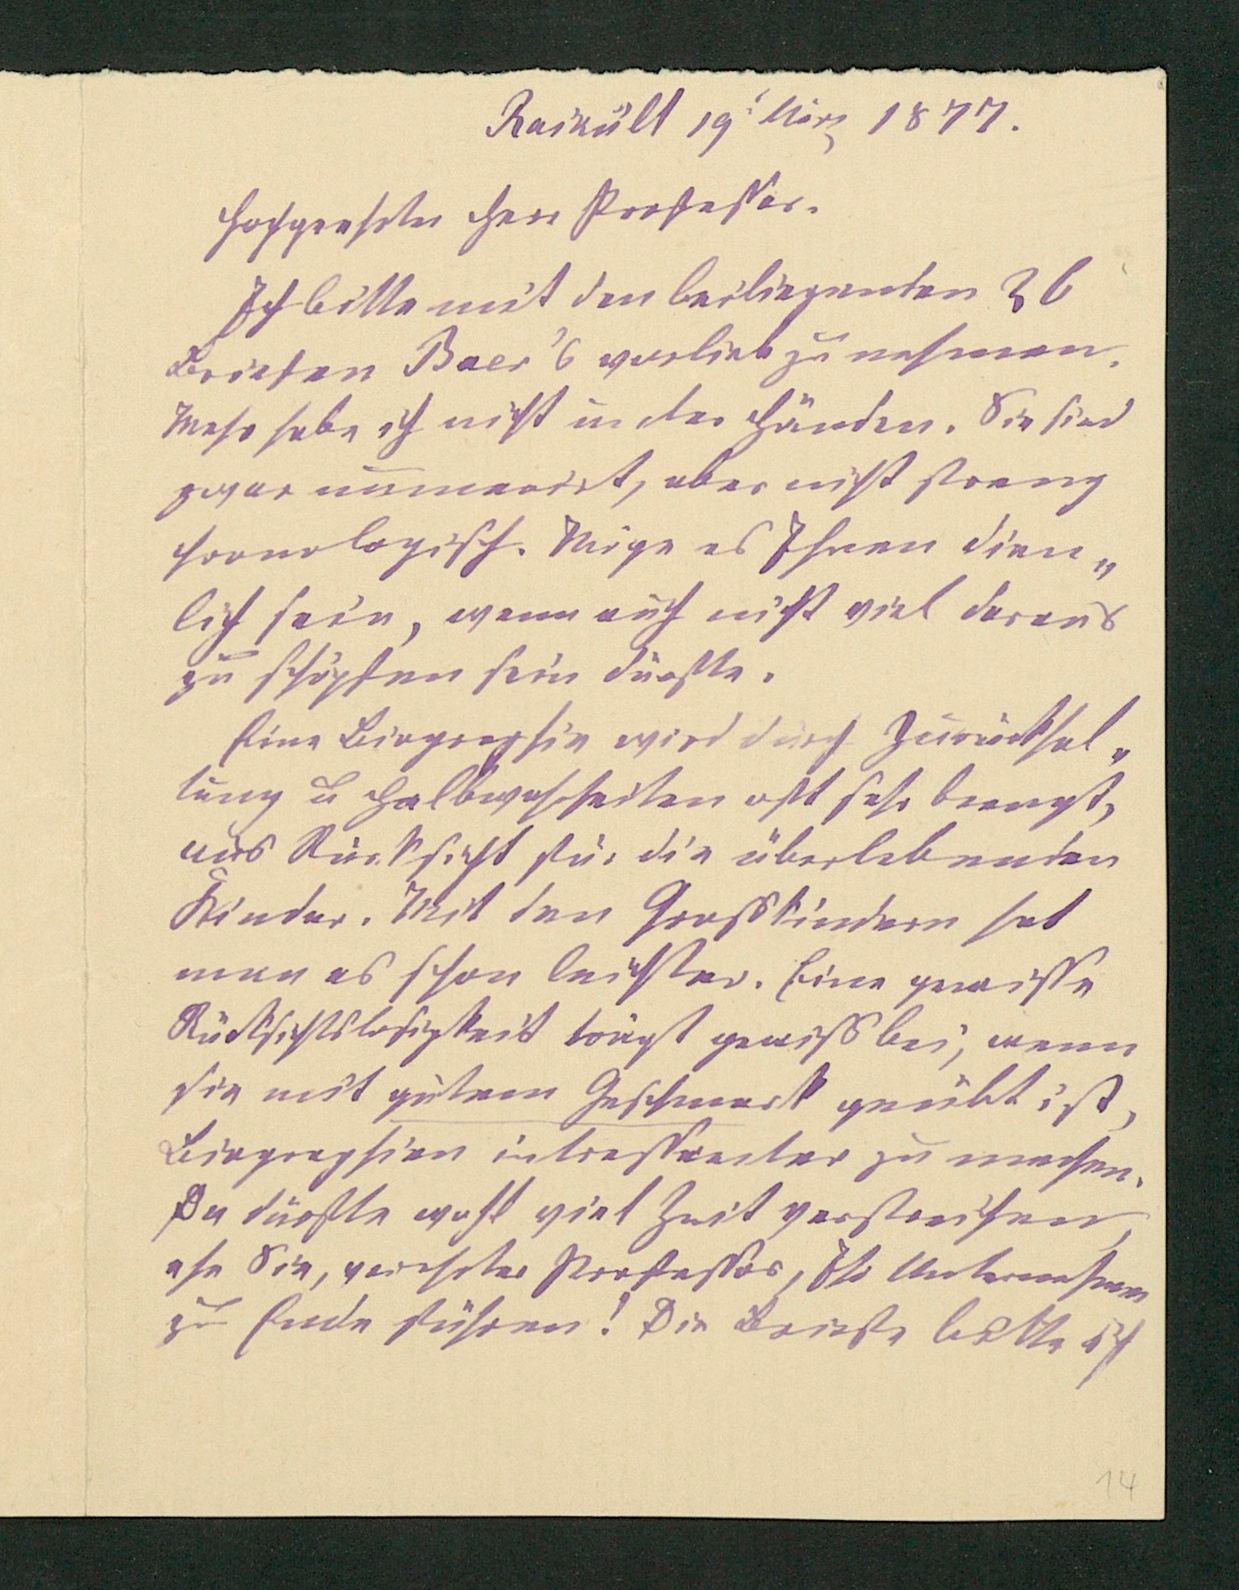 Raiküll 19t März 1877.
Hochgeehrter Herr Professor.
Ich bitte mit den beiliegenden 26
Briefen Baer's vorlieb zu nehmen.
Mehr habe ich nicht in den Händen. Sie sind
zwar nummerirt, aber nicht streng
chronologisch. Möge es Ihnen dien„
lich sein, wenn auch nicht viel daraus
zu schöpfen sein dürfte.
Eine Biographie wird durch Zurückhal„
tung u Halbwahrheiten oft sehr beengt,
aus Rücksicht für die überlebenden
Kinder. Mit den Grosskindern hat
man es schon leichter. Eine gewisse
Rücksichtslosigkeit trägt gewiss bei, wenn
sie mit gutem Geschmack geübt ist,
Biographien interessanter zu machen.
Da dürfte wohl viel Zeit verstreichen,
ehe Sie, verehrter Professor, Ihr Unternehmen
zu Ende führen! Die Briefe bitte ich
14